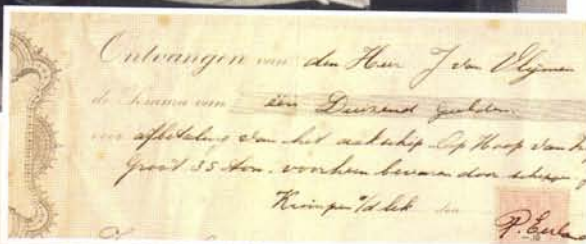 Ontvangen van den Heer J van Vlijmen
de Somma van één Duizend gulden
voor afbetaling van het aakschip Op Hoop van
groot 35 ton. voorheen bevaren door schipper
Krimpen a/d lek den
P.